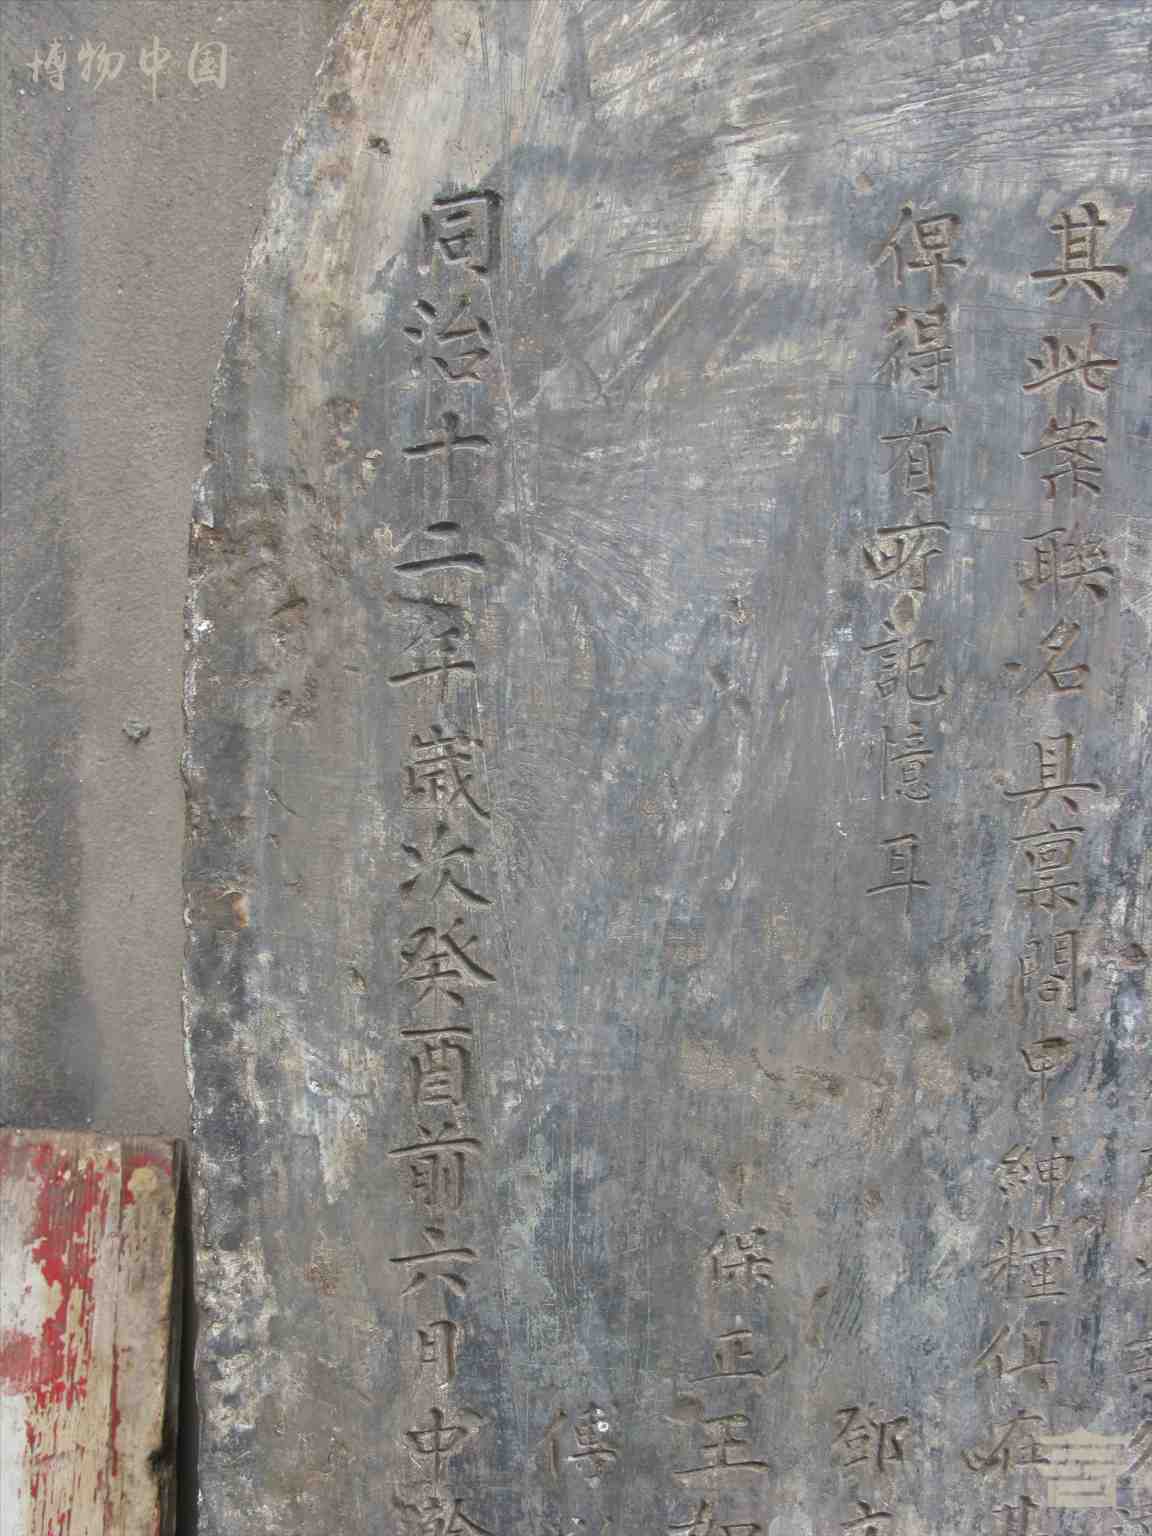 博物中国
其此案联名具禀間甲紳糧俱在
俾得有所記憶耳
鄧
保正王如
傅
同治十二年歲次癸酉前六月中澣